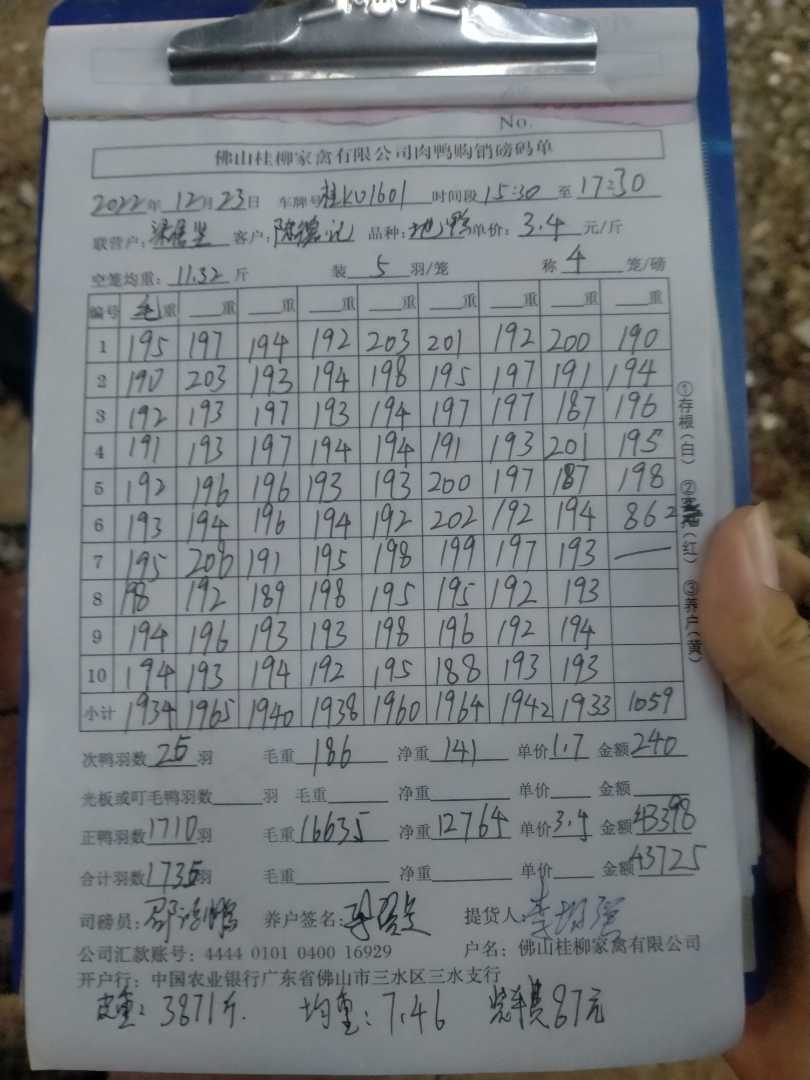 No.
佛山桂柳家禽有限公司肉鸭购销磅码单
2022年12月23日 车牌号桂KU1601 时间段15:30至17:30
联营户: 客户: 品种: 单价:3.4元/斤
空笼均重:11.32斤 装5羽/笼 称4笼/磅
编号 毛重 重 重 重 重 重 重 重 重
1 195 197 194 192 203 201 192 200 190
2 190 203 193 194 198 195 197 191 194
3 192 193 197 193 194 197 197 187 196
4 191 193 197 194 194 191 193 201 195
5 192 196 196 193 193 200 197 187 198
6 193 194 196 194 192 202 192 194 86
7 195 208 191 195 198 199 197 193 —
8 198 192 189 198 195 195 192 193
9 194 196 193 193 198 196 192 194
10 194 193 194 192 195 188 193 193
小计 1934 1965 1940 1938 1960 1964 1942 1933 1059
①存根(白) ②客户(红) ③养户(黄)
次鸭羽数25羽 毛重186 净重141 单价1.7 金额240
光板或叮毛鸭羽数 羽 毛重 净重 单价 金额
正鸭羽数1710羽 毛重16635 净重12764 单价3.4 金额43398
合计羽数1735羽 毛重 净重 单价 金额43725
司磅员: 养户签名: 提货人:
公司汇款账号: 4444 0101 0400 16929 户名: 佛山桂柳家禽有限公司
开户行: 中国农业银行广东省佛山市三水区三水支行
皮重: 3871斤. 均重: 7.46 费87元